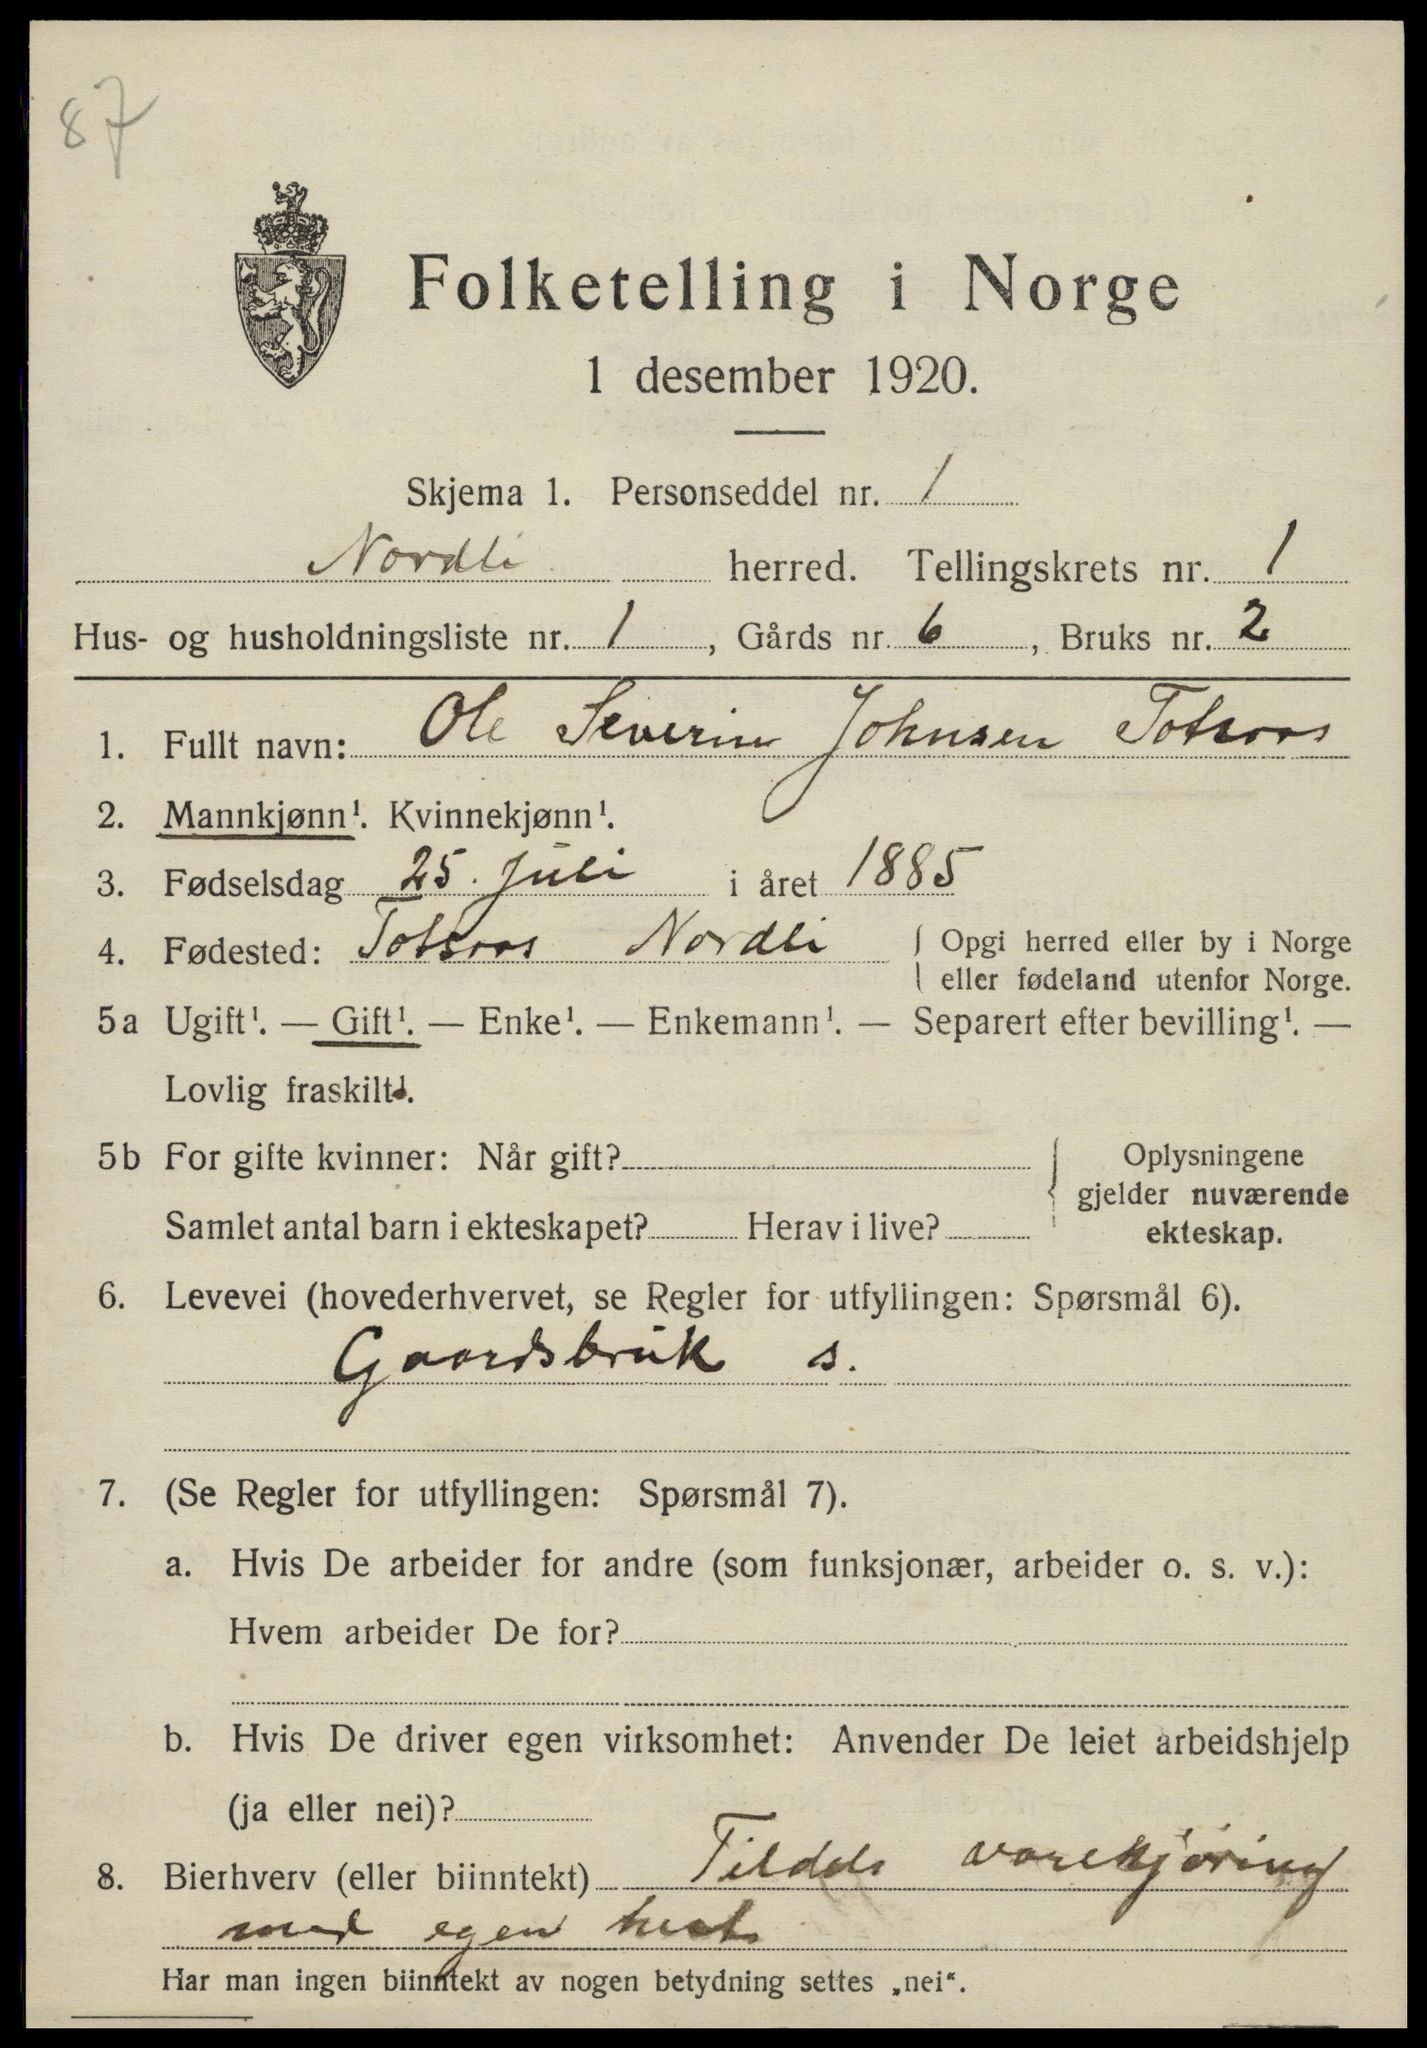 87
Folketelling i Norge
1 desember 1920.
Skjema 1. Personseddel nr. 1
Nordli herred. Tellingskrets nr. 1
Hus- og husholdningsliste nr. 1, Gårds nr. 6, Bruks nr. 2
1. Fullt navn: Ole Severin Johnsen Totsaas
2. Mannkjønn¹. Kvinnekjønn¹.
3. Fødselsdag 25. Juli i året 1885
4. Fødested: Totsaas Nordli { Opgi herred eller by i Norge
eller fødeland utenfor Norge.
5a Ugift¹. — Gift¹. — Enke¹. — Enkemann¹. — Separert efter bevilling¹. —
Lovlig fraskilt¹.
5b For gifte kvinner: Når gift? { Oplysningene
gjelder nuværende
Samlet antal barn i ekteskapet? Herav i live? ekteskap.
6. Levevei (hovederhvervet, se Regler for utfyllingen: Spørsmål 6).
Gaardsbruk s.
7. (Se Regler for utfyllingen: Spørsmål 7).
a. Hvis De arbeider for andre (som funksjonær, arbeider o. s. v.):
Hvem arbeider De for?
b. Hvis De driver egen virksomhet: Anvender De leiet arbeidshjelp
(ja eller nei)?
8. Bierhverv (eller biinntekt) Tildels varekjøring
med egen hest
Har man ingen biinntekt av nogen betydning settes „nei“.